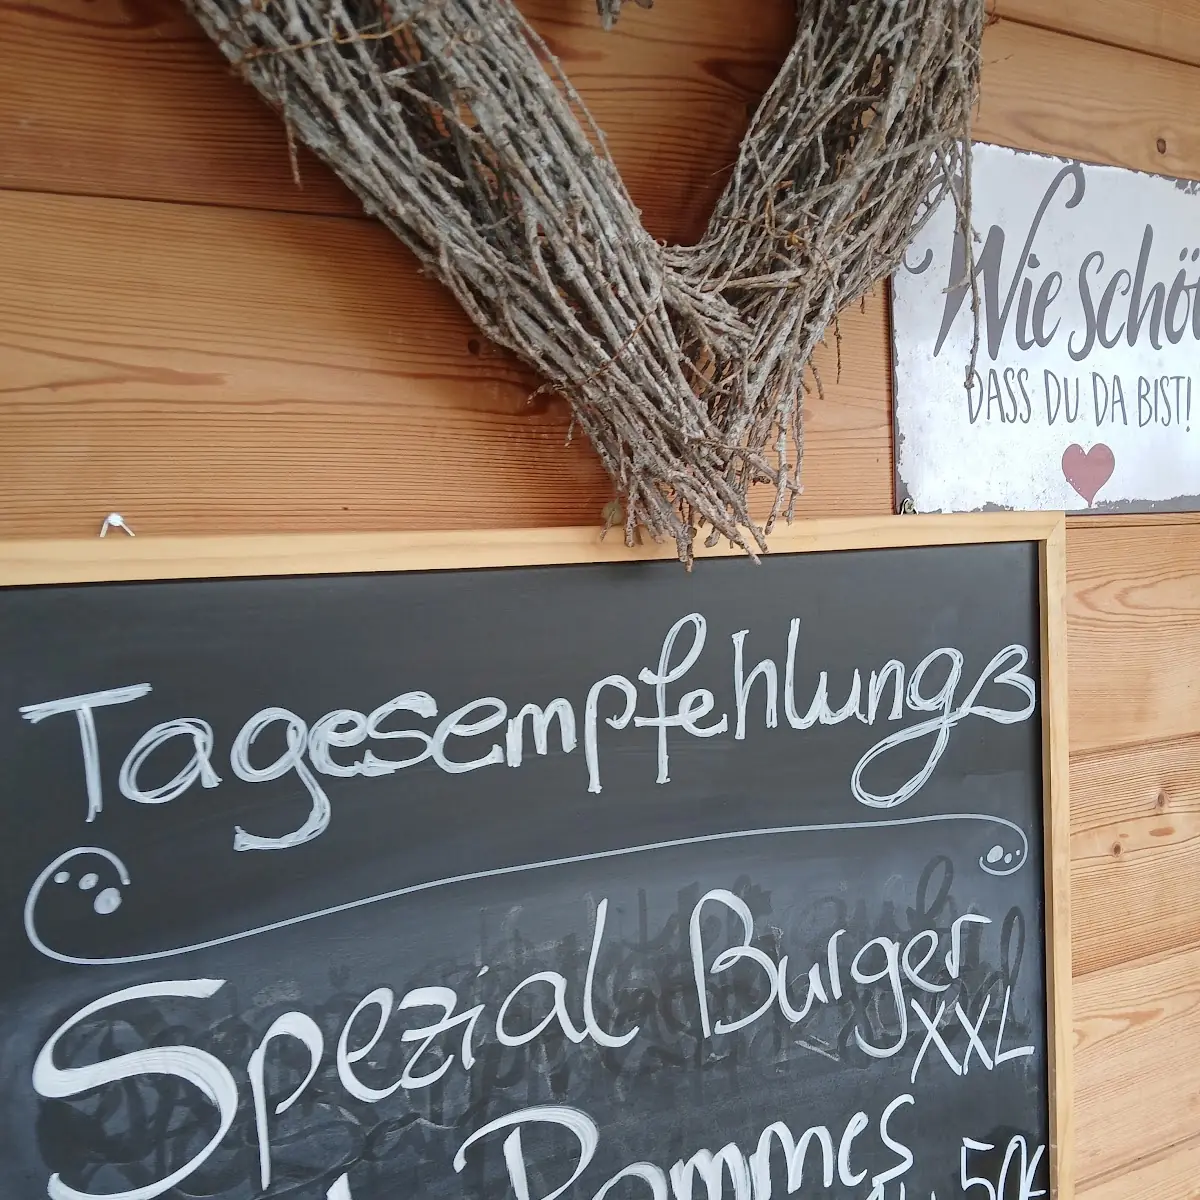 Wie schö
DASS DU DA BIST!
Tagesempfehlung
Spezial Burger
XXL
Pommes